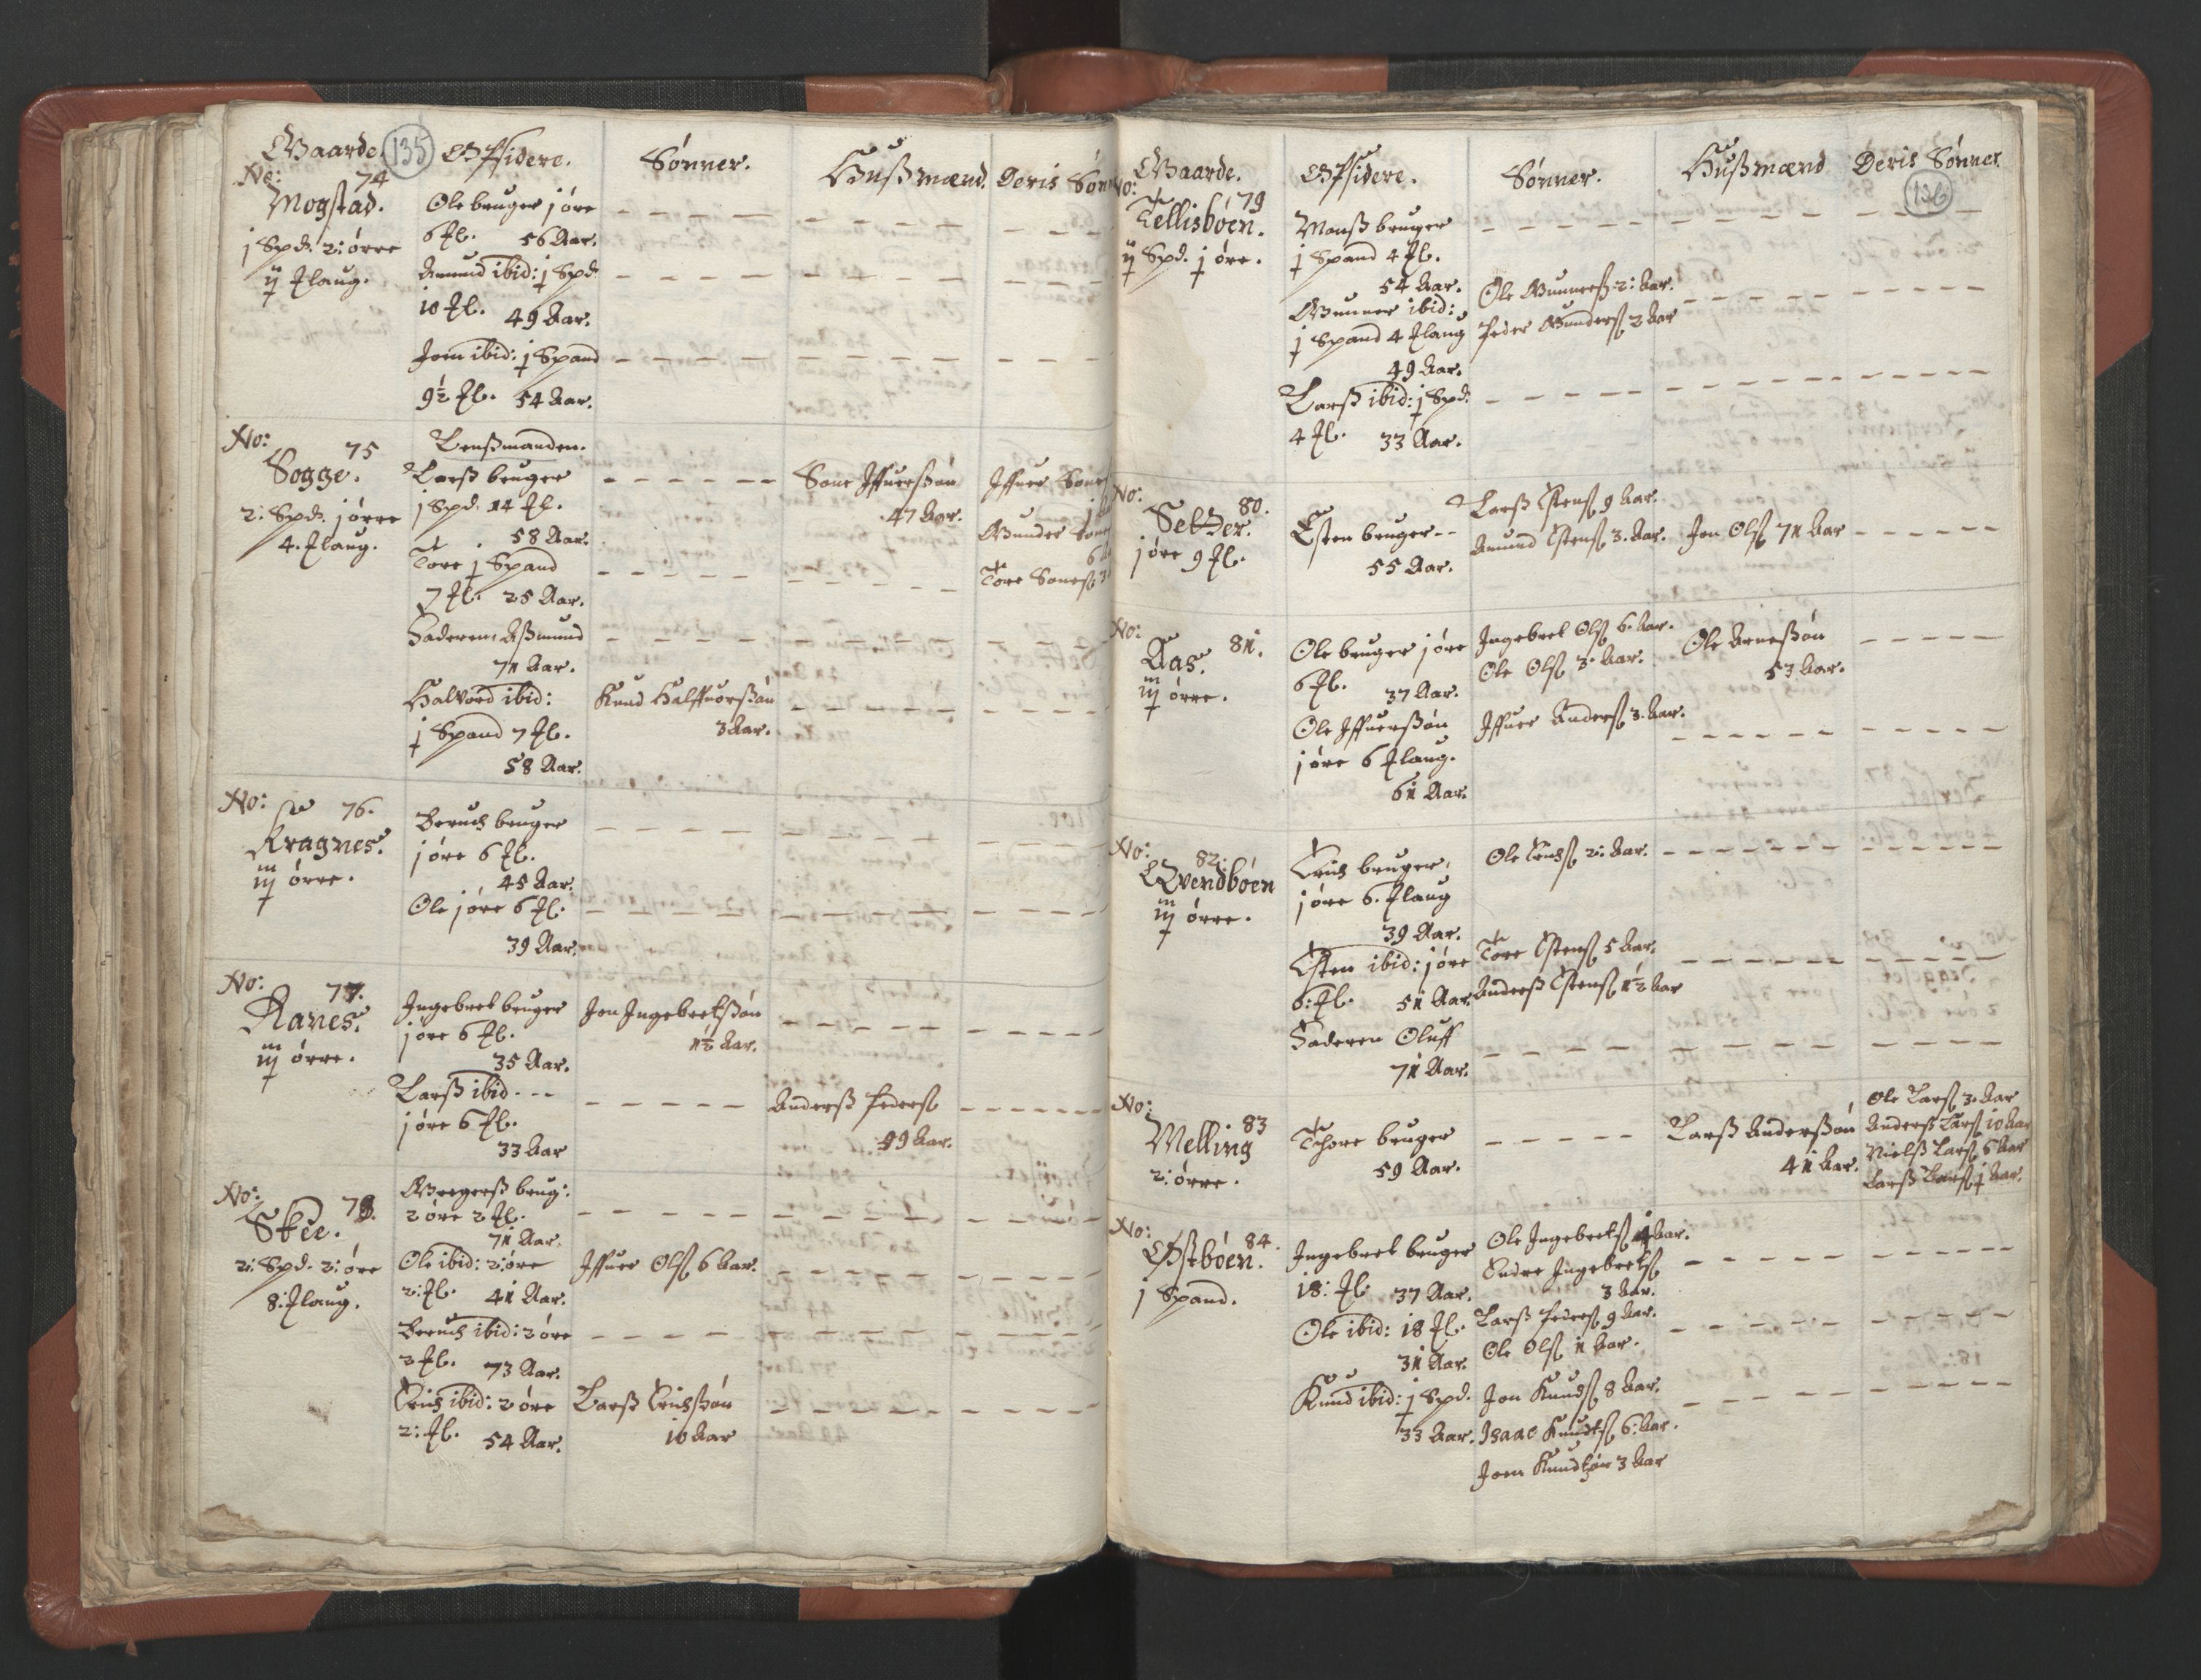 Gaarde. 135 Opsidere. Sønner. Hußmænd. Deris Søn
No: 74
Mogstad.
j Spd. 2: ørre
ij Flaug.
Ole bruger j øre
6 Fl. 56 Aar.
Amund ibid: j Spd.
10 Fl. 49 Aar.
Joen ibid: j Spand
9½ Fl. 54 Aar.
No: 75
Sogge.
2: Spd. j ørre
4. Flaug.
Lenßmanden.
Larß bruger
j Spd. 14 Fl.
58 Aar.
Tore j Spand
7 Fl. 25 Aar.
Faderen Aßmund
71 Aar.
Halvord ibid:
j Spand 7 Fl.
58 Aar.
Knud Halffuorßøn
3 Aar.
Sone Iffuerßøn
47 Aar.
Iffuer Sone
Gunder Sone
6
Tore Soneß 3
No: 76.
Kragnes.
iij ørre.
Beruch bruger
j øre 6 Fl.
45 Aar.
Ole j øre 6 Fl.
39 Aar.
No: 77.
Ranes.
iij ørre.
Ingebret bruger
j øre 6 Fl.
35 Aar.
Larß ibid
j øre 6 Fl.
33 Aar
Jon Ingebretßøn
1½ Aar.
Anderß Pederß
49 Aar.
No: 78.
Skee.
2: Spd. 2: øre
8: Flaug.
Gregerß brug:
2 øre 2 Fl.
71 Aar.
Ole ibid: 2: øre
2: Fl. 41 Aar.
Beruch ibid: 2 øre
2 Fl. 73 Aar.
Erich ibid: 2 øre
2: Fl. 54 Aar.
Iffuer Olß 6 Aar.
Larß Erichßøn
10 Aar
Gaarde. Opsidere. Sønner. Hußmænd Deris Sønner
136
No: 79
Tellisbøen.
ij Spd. j øre.
Monß bruger
j Spand 4 Fl.
54 Aar.
Gunner ibid:
j Spand 4 Flaug
49 Aar.
Larß ibid: j Spd.
4 Fl. 33 Aar.
Ole Gunnerß 2: Aar.
Peder Gunderß 2 Aar
No: 80.
Setßer.
j øre 9 Fl.
Esten bruger
55 Aar.
Larß Estenß 9 Aar.
Amund Estenß 3. Aar.
Jon Olß 71 Aar
No: 81.
Aas.
iij ørre.
Ole bruger j øre
6 Fl. 37 Aar.
Ole Iffuerßøn
j øre 6 Flaug.
61 Aar.
Ingebret Olß 6. Aar.
Ole Olß 3. Aar.
Iffuer Anderß 3. Aar.
Ole Arneßøn
53 Aar.
No: 82.
Qvendbøen
iij ørre.
Erich bruger
j øre 6. Flaug
39 Aar.
Esten ibid: j øre
6: Fl. 51 Aar
Faderen Oluff
71 Aar.
Ole Erichß 2: Aar.
Tore Estenß 5 Aar.
Anderß Estenß 1½ Aar
No: 83
Melling
2: ørre.
Thore bruger
59 Aar.
Larß Anderßøn
41 Aar.
Ole Larß 3. Aar
Anderß Larß 10 Aar
Nielß Larß 6 Aar
Larß Larß j Aar.
No: 84.
Østbøen.
j Spand.
Ingebret bruger
18: Fl. 37 Aar.
Ole ibid: 18 Fl.
31 Aar.
Knud ibid: j Spd.
33 Aar.
Ole Ingebretß Aar.
Endre Ingebretß
3 Aar.
Larß Pederß 9 Aar.
Ole Olß 1 Aar.
Jon Knudß 8 Aar.
Isaac Knudtß 6: Aar.
Joen Knudßøn 3 Aar